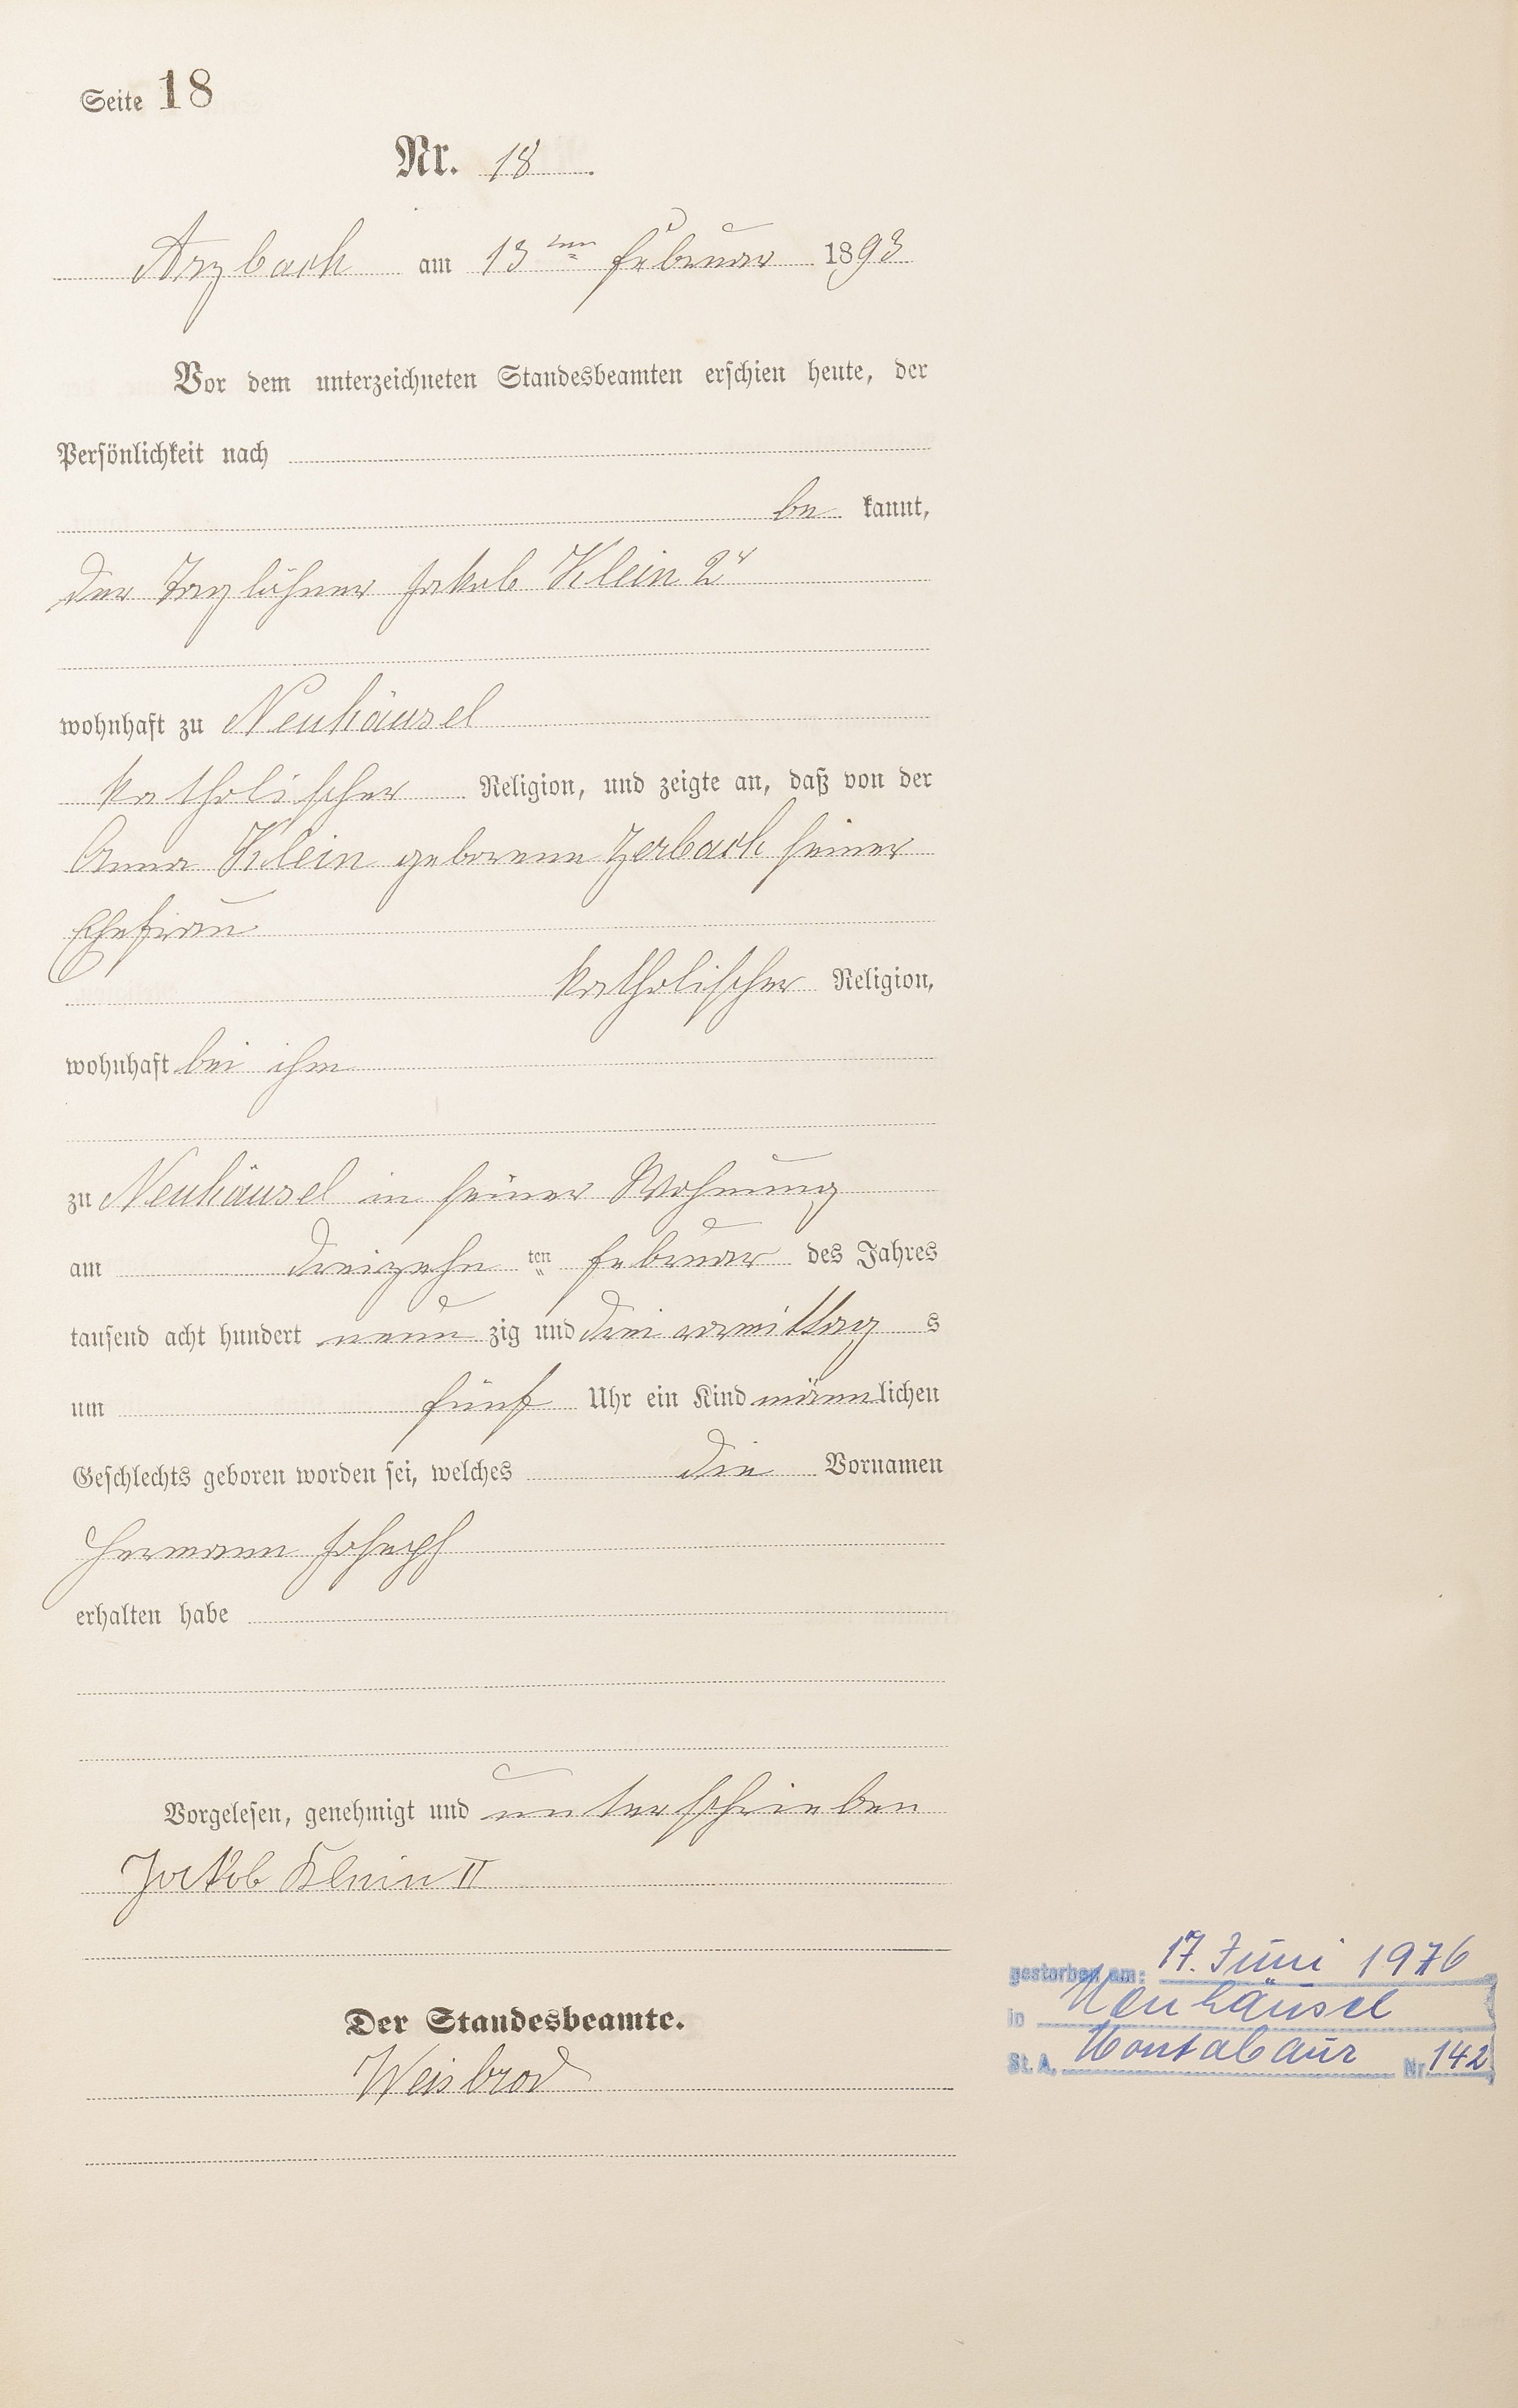 Seite 18
Nr. 18.
Arzbach am 13ten Februar 1893
Vor dem unterzeichneten Standesbeamten erschien heute, der
Persönlichkeit nach
be kannt,
der Taglöhner Jakob Klein 2r
wohnhaft zu Neuhäusel
katholischer Religion, und zeigte an, daß von der
Anna Klein geborene Zerbach seiner
Ehefrau
katholischer Religion,
wohnhaft bei ihm
zu Neuhäusel in seiner Wohnung
am dreizehn ten Februar des Jahres
tausend acht hundert neun zig und drei vormittag s
um fünf Uhr ein Kind männlichen
Geschlechts geboren worden sei, welches die Vornamen
Hermann Joseph
erhalten habe
Vorgelesen, genehmigt und unterschrieben
Jackob Klein II
Der Standesbeamte.
Weisbrod
gestorben am: 17. Juni 1976
in Neuhäusel
St. A. Montabaur Nr. 142